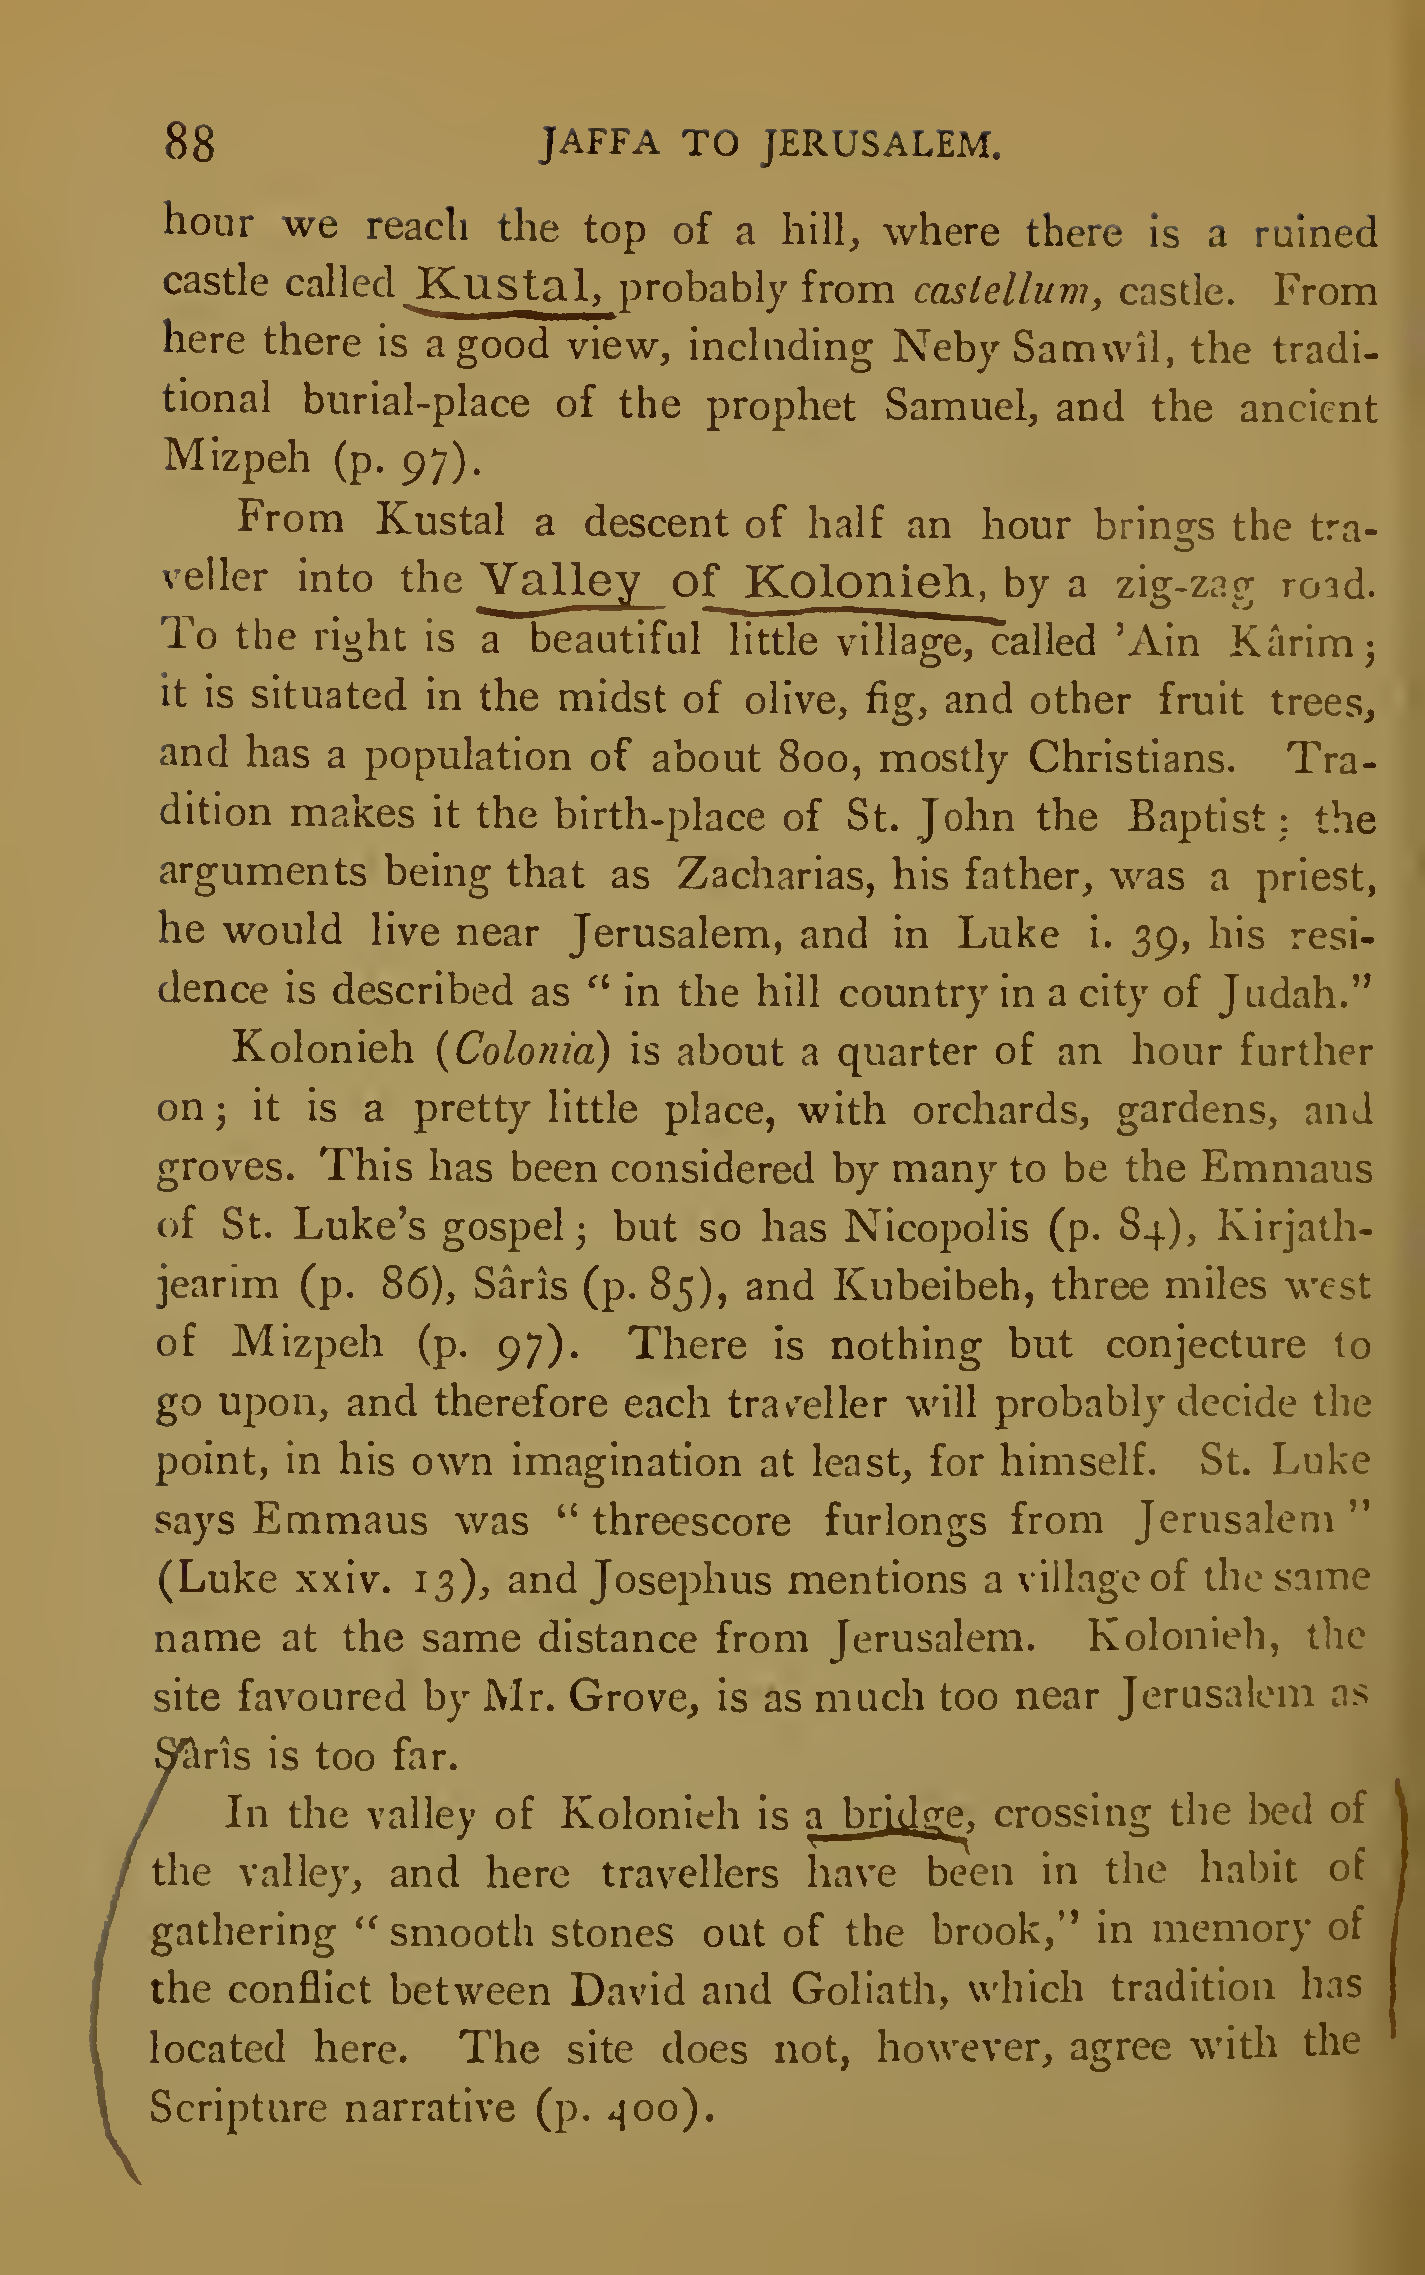 88 JAFFA TO JERUSALEM.
hour we reach the top of a hill, where there is a ruined
castle called Kustal, probably from castellum, castle. From
here there is a good view, including Neby Samwîl, the tradi-
tional burial-place of the prophet Samuel, and the ancient
Mizpeh (p. 97).
From Kustal a descent of half an hour brings the tra-
veller into the Valley of Kolonieh, by a zig-zag road.
To the right is a beautiful little village, called 'Ain Kârim;
it is situated in the midst of olive, fig, and other fruit trees,
and has a population of about 800, mostly Christians. Tra-
dition makes it the birth-place of St. John the Baptist; the
arguments being that as Zacharias, his father, was a priest,
he would live near Jerusalem, and in Luke i. 39, his resi-
dence is described as “in the hill country in a city of Judah.”
Kolonieh (Colonia) is about a quarter of an hour further
on; it is a pretty little place, with orchards, gardens, and
groves. This has been considered by many to be the Emmaus
of St. Luke's gospel; but so has Nicopolis (p. 84), Kirjath-
jearim (p. 86), Sârîs (p. 85), and Kubeibeh, three miles west
of Mizpeh (p. 97). There is nothing but conjecture to
go upon, and therefore each traveller will probably decide the
point, in his own imagination at least, for himself. St. Luke
says Emmaus was “threescore furlongs from Jerusalem”
(Luke xxiv. 13), and Josephus mentions a village of the same
name at the same distance from Jerusalem. Kolonieh, the
site favoured by Mr. Grove, is as much too near Jerusalem as
Sârîs is too far.
In the valley of Kolonieh is a bridge, crossing the bed of
the valley, and here travellers have been in the habit of
gathering “smooth stones out of the brook,” in memory of
the conflict between David and Goliath, which tradition has
located here. The site does not, however, agree with the
Scripture narrative (p. 400).